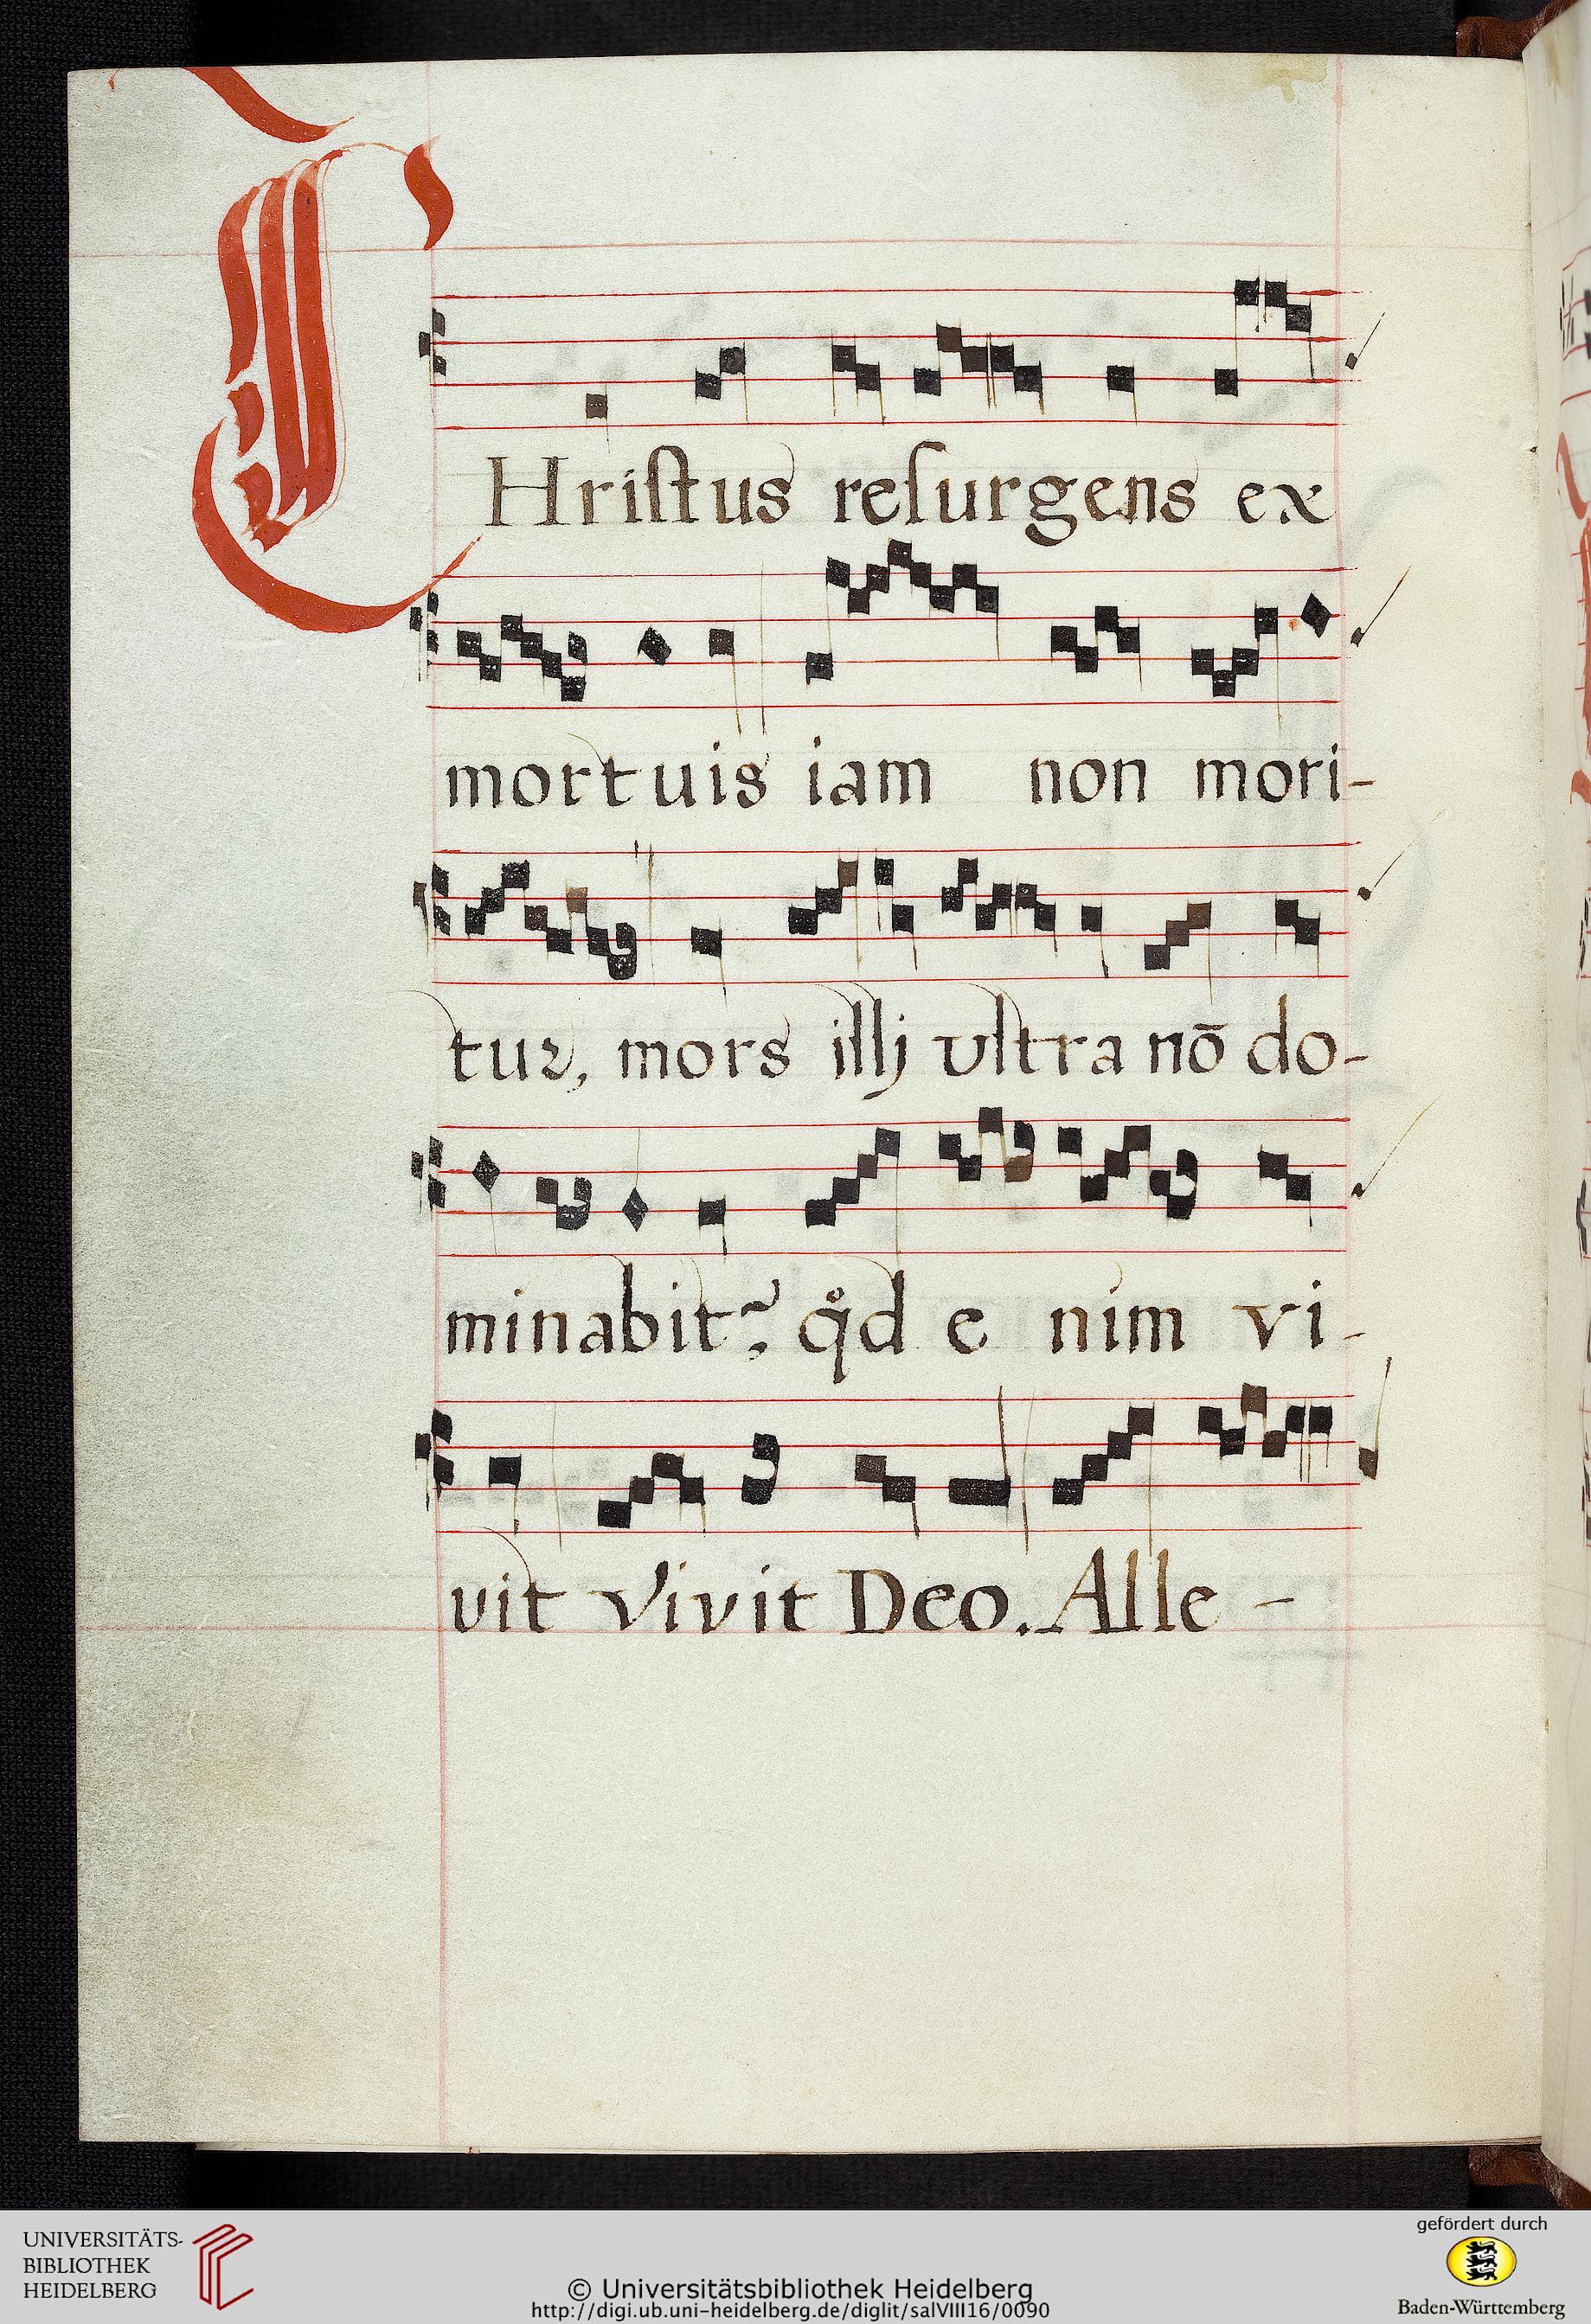 CHriſtus reſurgens ex
mortuis iam non mori-
tur, mors illj vltra nō do-
minabit᷑, qͦd e nim vi-
vit vivit Deo. Alle -
UNIVERSITÄTS-
BIBLIOTHEK
HEIDELBERG
© Universitätsbibliothek Heidelberg
http://digi.ub.uni-heidelberg.de/diglit/salVIII16/0090
gefördert durch
Baden-Württemberg